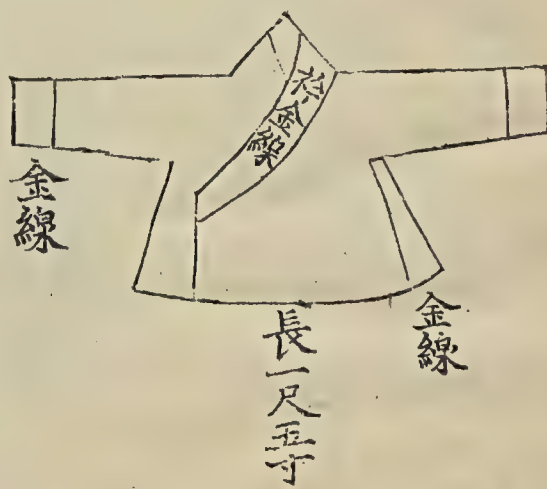 衫金線
金線
長一尺五寸
金線